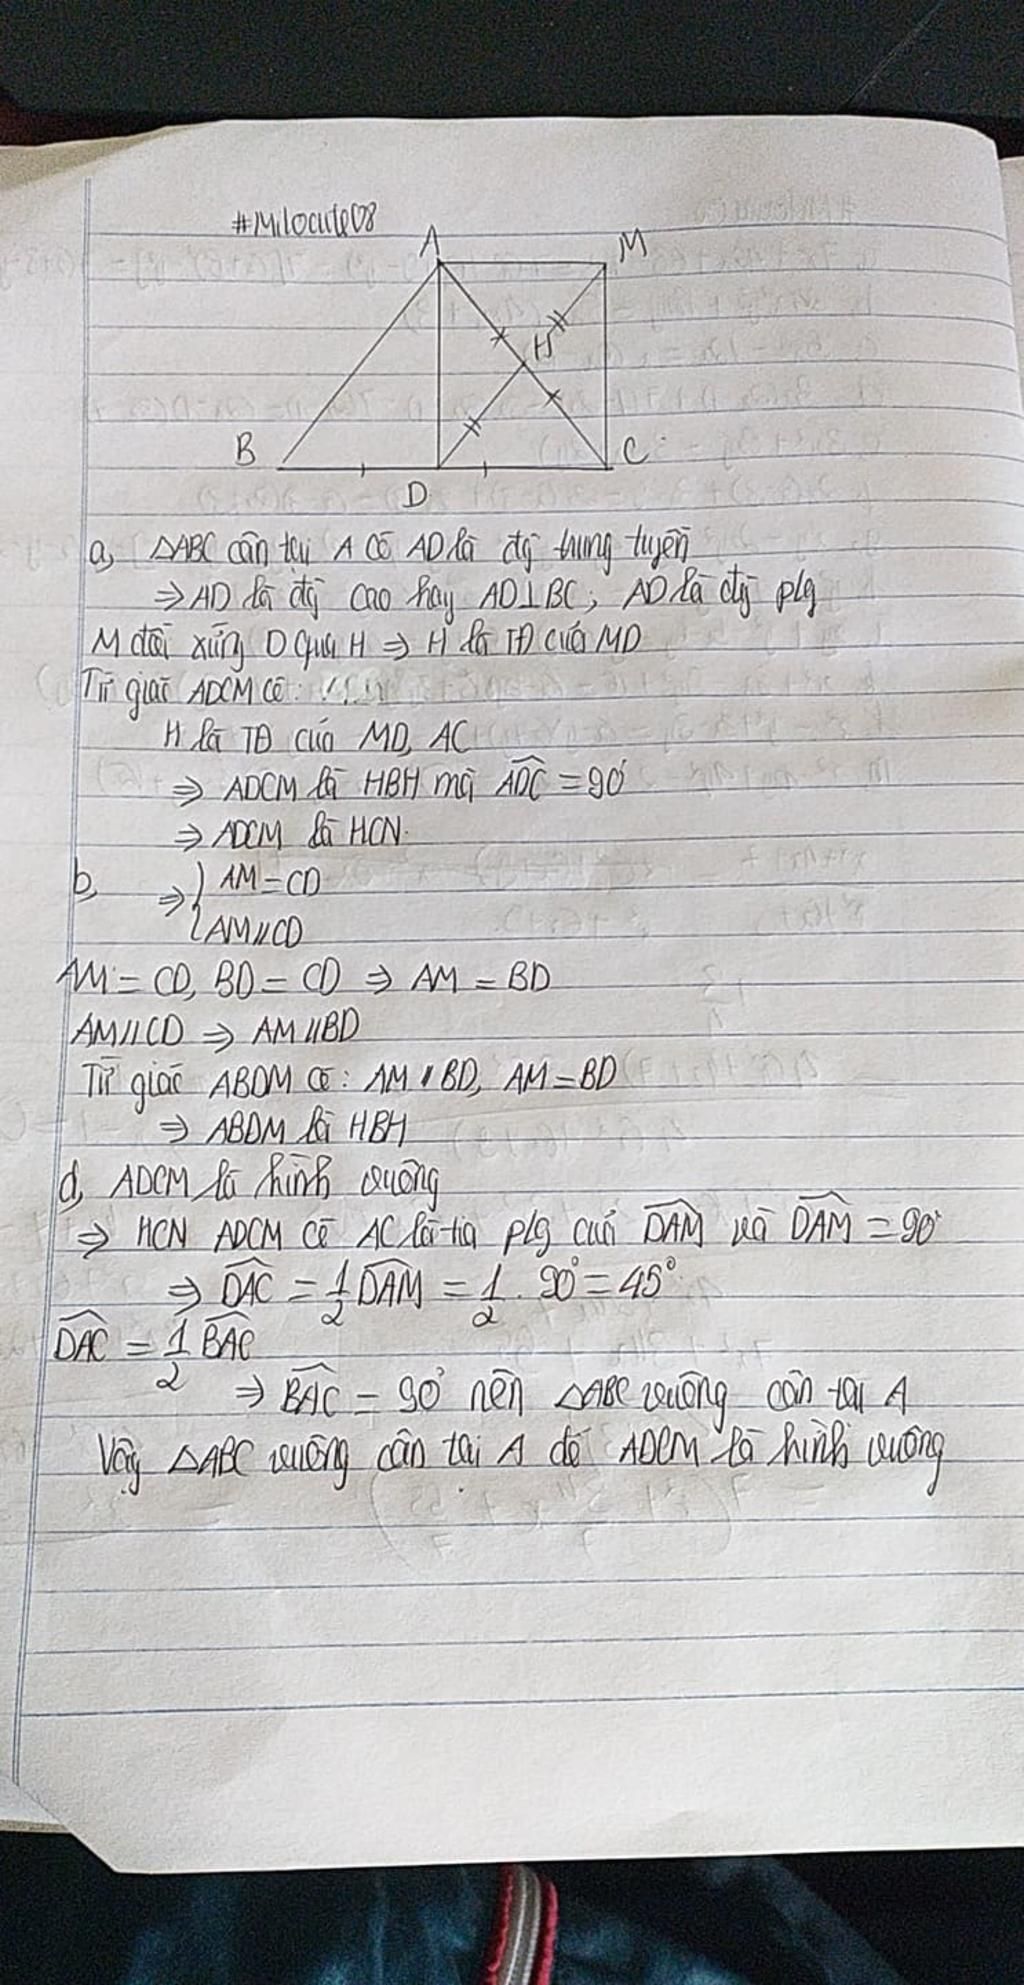 #Milocute08
A
M
H
B
C
D
a, △ABC cân tại A có AD là đg trung tuyến
⇒ AD là đg cao hay AD⊥BC, AD là đg plg
M đối xứng D qua H ⇒ H là TĐ của MD
Tứ giác ADCM có:
H là TĐ của MD, AC
⇒ ADCM là HBH mà ADC = 90°
⇒ ADCM là HCN.
b, ⇒ { AM = CD
AM // CD
AM = CD, BD = CD ⇒ AM = BD
AM // CD ⇒ AM // BD
Tứ giác ABDM có: AM // BD, AM = BD
⇒ ABDM là HBH
d, ADCM là hình vuông
⇒ HCN ADCM có AC là tia plg của DAM và DAM = 90°
⇒ DAC = 1/2 DAM = 1/2 . 90° = 45°
DAC = 1/2 BAC
⇒ BAC = 90° nên △ABC vuông cân tại A
Vậy △ABC vuông cân tại A để ADCM là hình vuông